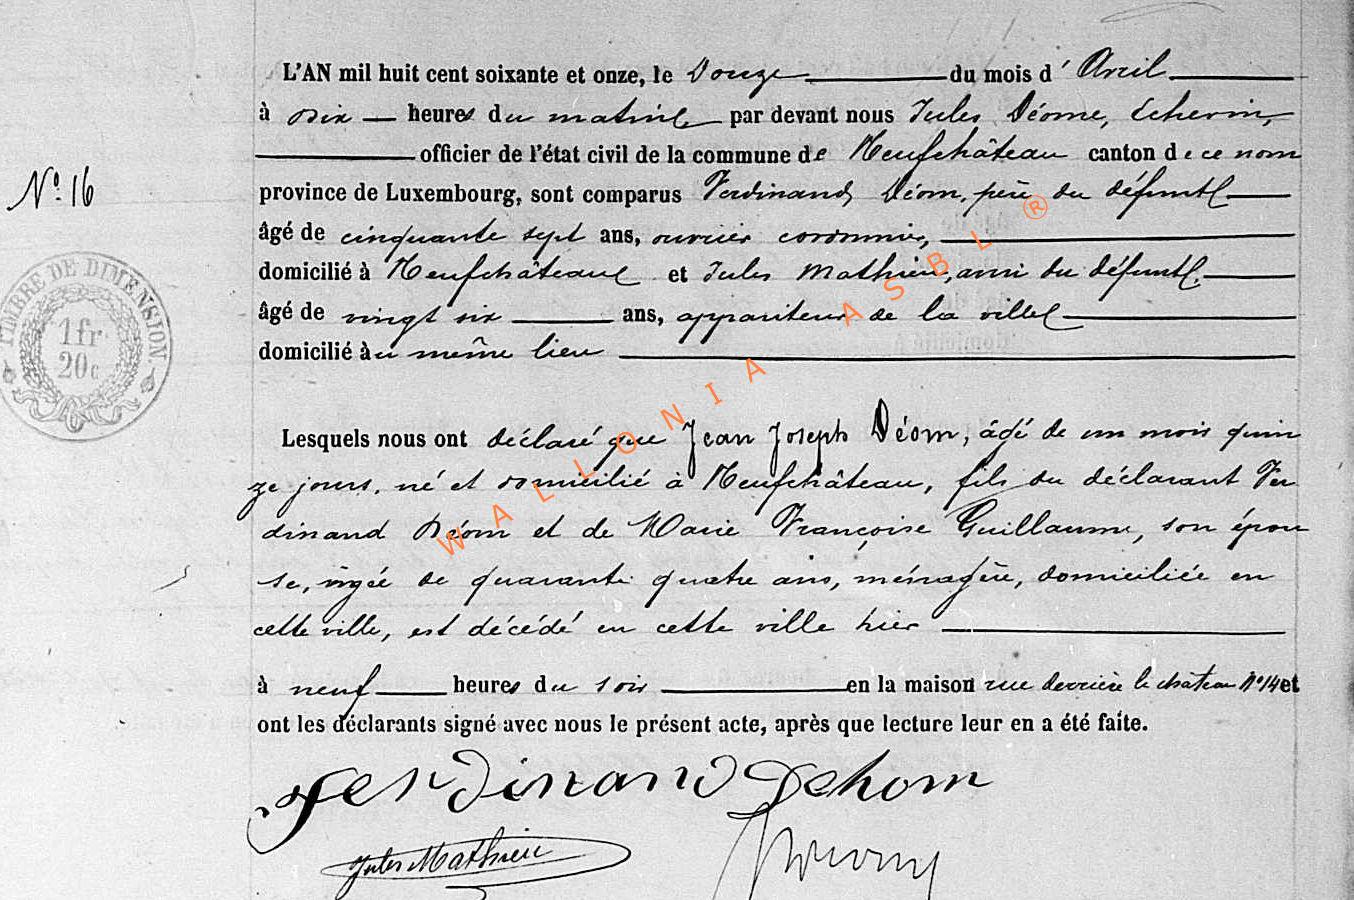 L'AN mil huit cent soixante et onze, le Douze du mois d' Avril
à dix heures du matin par devant nous Jules Déome, Echevin,
officier de l'état civil de la commune de Neufchâteau canton de ce nom
N° 16
province de Luxembourg, sont comparus Ferdinand Déom, père du défunt
âgé de cinquante sept ans, ouvrier cordonnier,
domicilié à Neufchâteau et Jules Mathieu, ami du défunt.
âgé de vingt six ans, appariteur de la ville
domicilié au même lieu
TIMBRE DE DIMENSION.
1 fr.
20 c
Lesquels nous ont déclaré que Jean Joseph Déom, âgé de un mois quin
ze jours, né et domicilié à Neufchâteau, fils du déclarant Fer
dinand Déom et de Marie Françoise Guillaume, son épou
se, âgée de quarante quatre ans, ménagère, domiciliée en
cette ville, est décédé en cette ville hier
à neuf heures du soir en la maison rue derrière le château N° 14 et
ont les déclarants signé avec nous le présent acte, après que lecture leur en a été faite.
Ferdinand Dehom
Jules Mathieu
WALLONIA ASBL ®